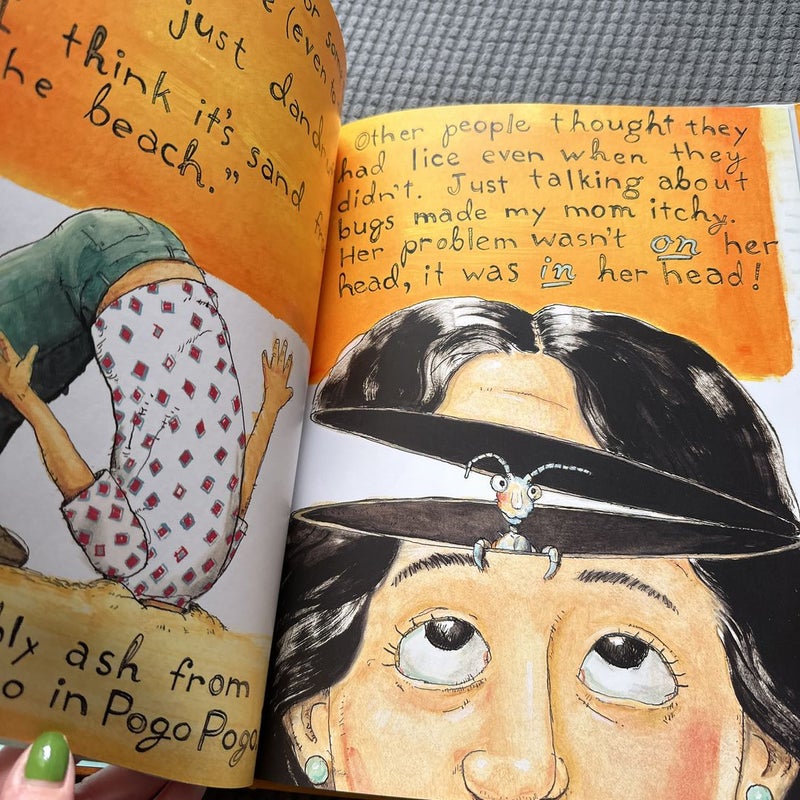 or som
e (even
just dandru
I think it's sand fr
he beach."
bly ash from
o in Pogo Pogo
Other people thought they
had lice even when they
didn't. Just talking about
bugs made my mom itchy.
Her problem wasn't on her
head, it was in her head!